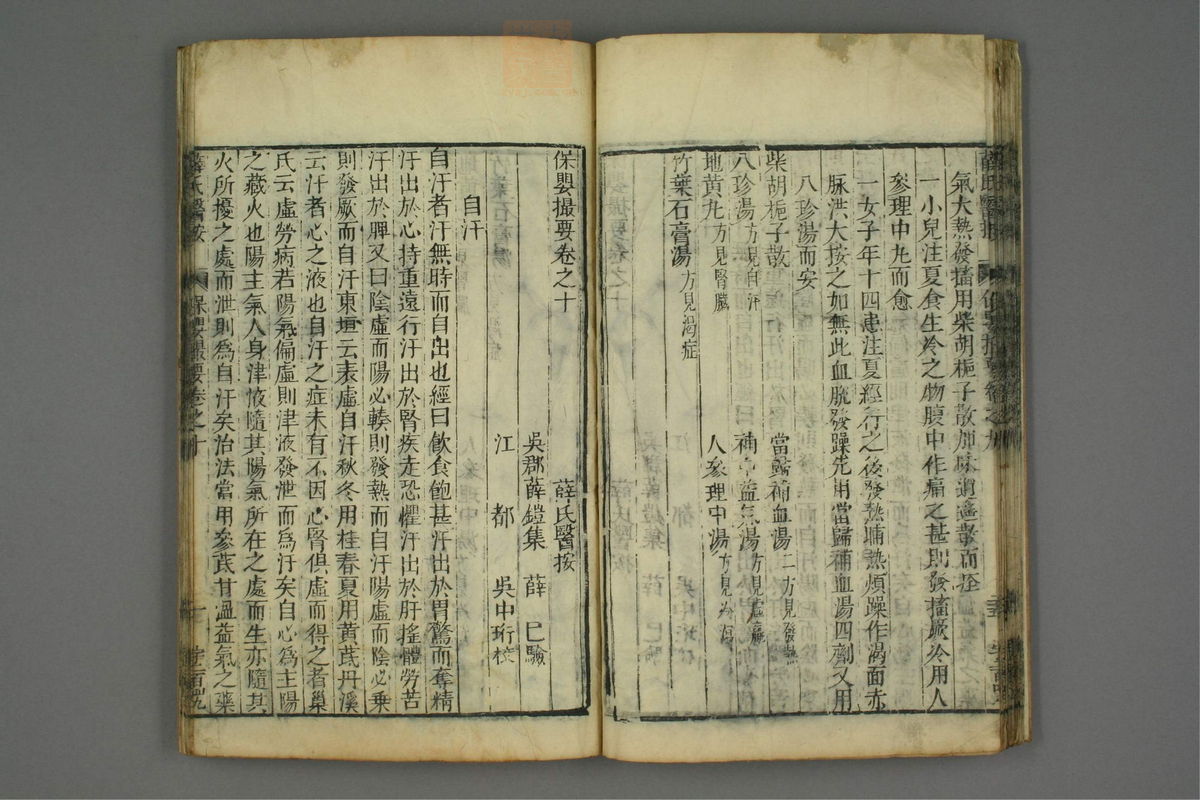 氣大熱發搐用柴胡梔子散加味逍遙散而痊
一小兒注夏食生冷之物腹中作痛之甚則發搐厥冷用人
參理中丸而愈
一女子年十四患注夏經行之後發熱晡熱煩躁作渴面赤
脉洪大按之如無此血脫發躁先用當歸補血湯四劑又用
八珍湯而安
柴胡梔子散 當歸補血湯二方見發熱
八珍湯方見自汗 補中益氣湯方見虛羸
地黄丸方見腎臟 人參理中湯
竹葉石膏湯方見渴症
保嬰撮要卷之十 薛氏醫按
吳郡薛鎧集 薛 已驗
江 都 吳中珩校
自汗
自汗者汗無時而自出也經曰飲食飽甚汗出於胃驚而奪精
汗出於心持重遠行汗出於腎疾走恐懼汗出於肝搖體勞苦
汗出於脾又曰陰虛而陽必輳則發熱而自汗陽虛而陰必乘
則發厥而自汗東垣云表虛自汗秋冬用桂春夏用黄芪丹溪
云汗者心之液也自汗之症未有不因心腎俱虛而得之者巢
氏云虛勞病若陽氣偏虛則津液發泄而為汗矣自心為主陽
之藏火也陽主氣人身津液隨其陽氣所在之處而生亦隨其
火所擾之處而泄則為自汗矣治法當用參芪甘溫益氣之藥
薛氏醫按 保嬰撮要卷之十